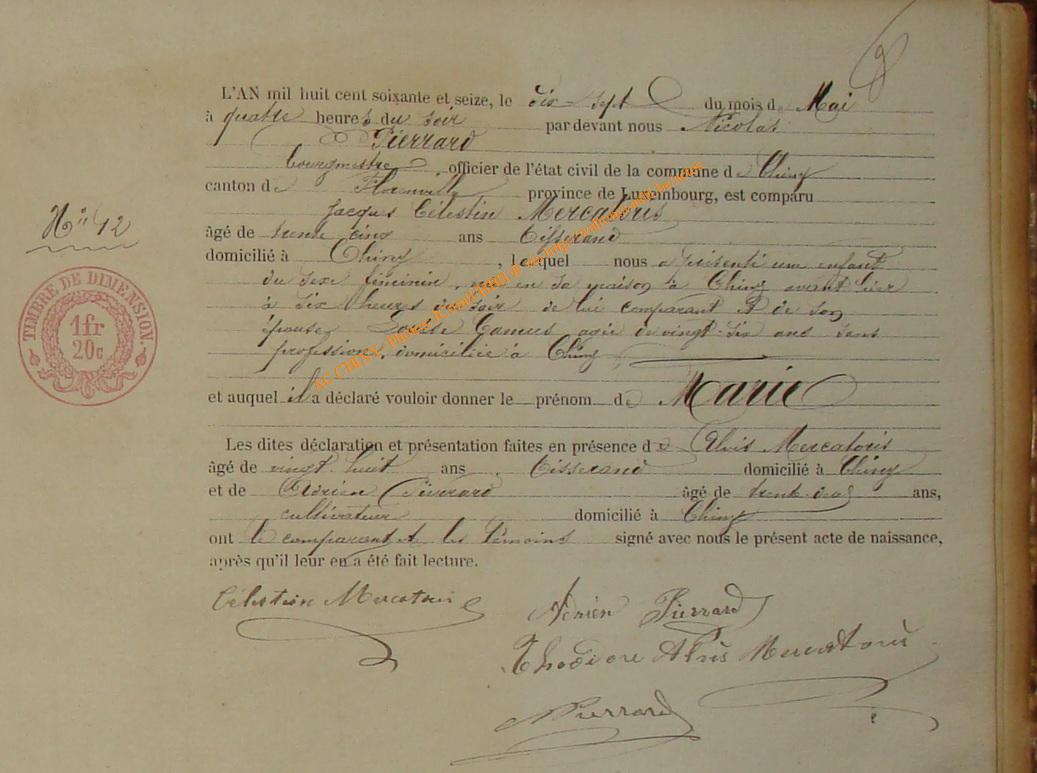 L'AN mil huit cent soixante et seize, le dix-sept du mois de Mai
à quatre heures du soir par devant nous Nicolas
Pierrard
bourgmestre, officier de l'état civil de la commune de Chiny
canton de Florenville province de Luxembourg, est comparu
Jacques Célestin Mercatoris
âgé de trente cinq ans tisserand
domicilié à Chiny, lequel nous a présenté un enfant
du sexe féminin, en sa maison à Chiny avant hier
à six heures du soir de lui comparant & de son
épouse Louise Camus agée de vingt-six ans sans
profession, domiciliée à Chiny
et auquel il a déclaré vouloir donner le prénom de Marie
Les dites déclaration et présentation faites en présence de Alvis Mercatoris
âgé de vingt huit ans tisserand domicilié à Chiny
et de Adrien Pierrard âgé de trente-deux ans,
cultivateur domicilié à Chiny
ont le comparant et les témoins signé avec nous le présent acte de naissance,
après qu'il leur en a été fait lecture.
Célestin Mercatoris
Adrien Pierrard
Alvis Mercatoris
N Pierrard
N° 12
TIMBRE DE DIMENSION.
1 fr
20 c
AC CHINY, Photos